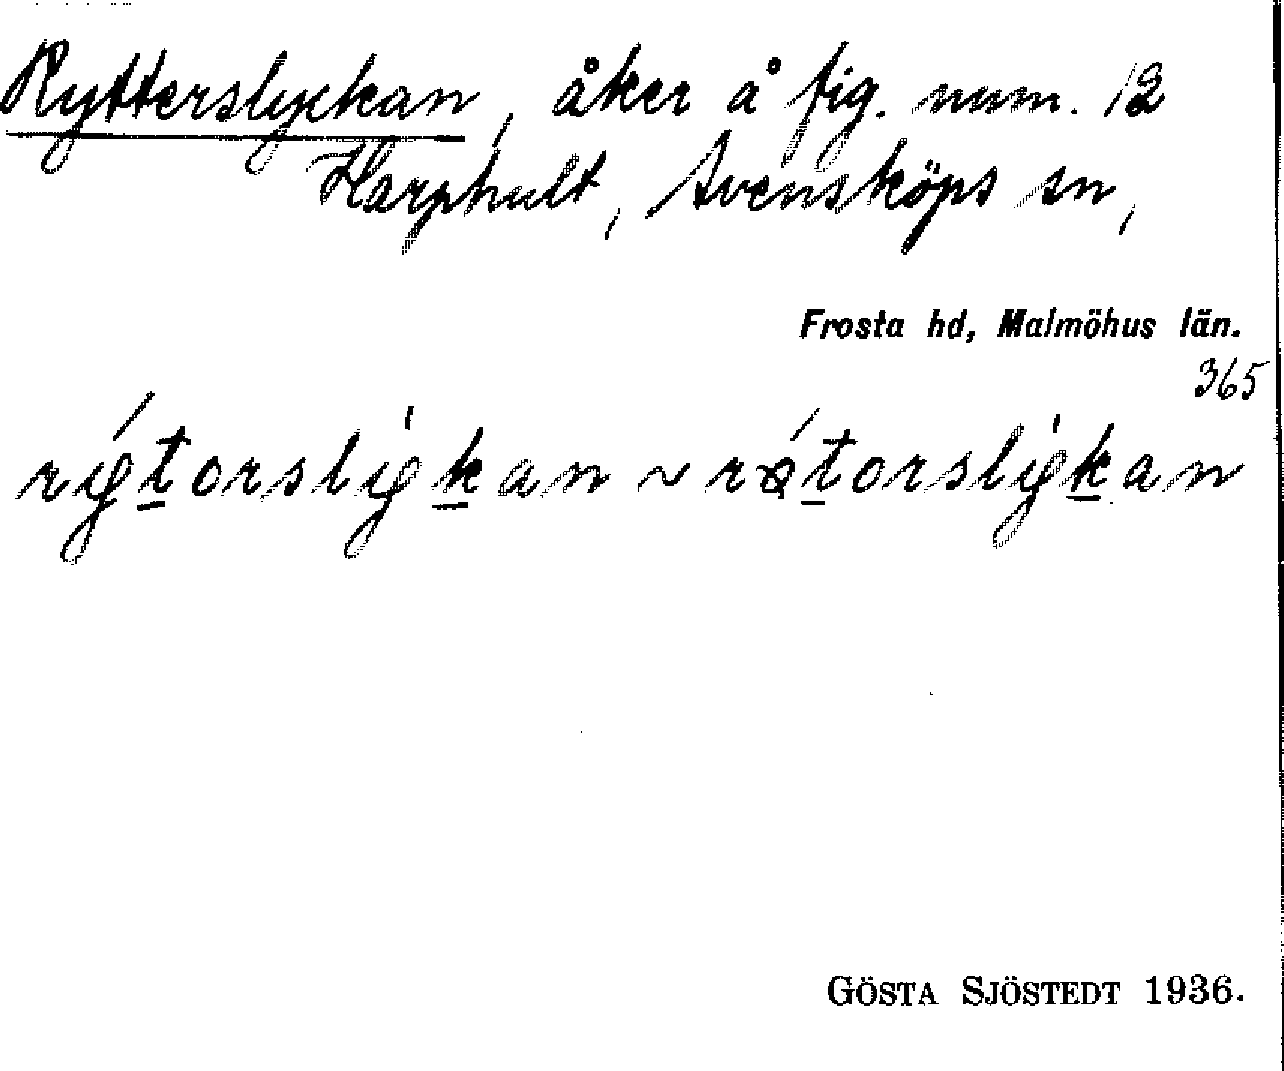 Rytterslyckan, åker å fig. num. 12
Harphult, Svensköps sn,
Frosta hd, Malmöhus län.
365
rýtorslykan ~ rǿtorslykan
GÖSTA SJÖSTEDT 1936.